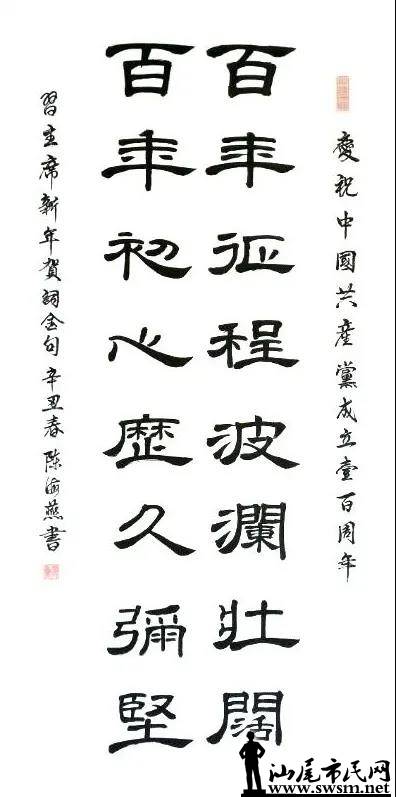 慶祝中國共產黨成立壹百周年
百年征程波瀾壯闊
百年初心歷久彌堅
習主席新年賀詞金句 辛丑春 陳海燕書
汕尾市民网
www.swsm.net